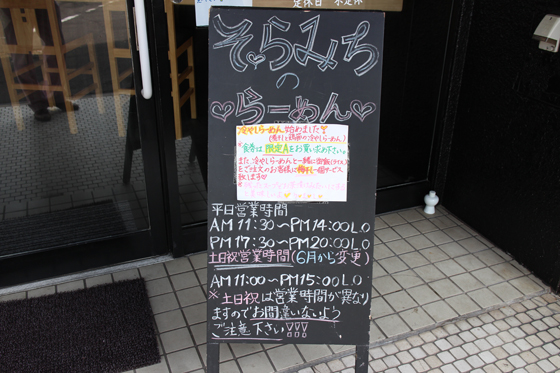 定休日 不定休
そらみち
の
らーめん
冷やしらーめん始めました
※食券は限定Aをお買い求め下さい。
また、冷やしらーめんと一緒に御飯(ライス)
をご注文のお客様に梅干し一個サービス
致します
平日営業時間
AM11:30〜PM14:00L.O
PM17:30〜PM20:00L.O
土日祝営業時間(6月から変更)
AM11:00〜PM15:00L.O
※土日祝は営業時間が異なり
ますのでお間違いないよう
ご注意下さい!!!